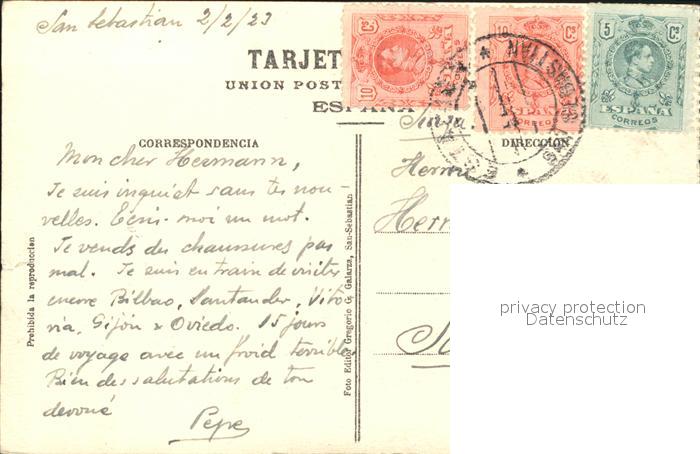 San Sebastian 2/2/23
TARJET
UNION POST
ESPAÑA
10 Cs
10 Cs
5 Cs
ESPAÑA
CORREOS
ESPAÑA
CORREOS
CORRESPONDENCIA
DIRECCIÓN
Mon cher Hermann,
Je suis inquiet sans tes nou-
velles. Ecris-moi un mot.
Je vends des chaussures pas
mal. Je suis en train de visiter
encore Bilbao, Santander, Vito
ria, Gijón & Oviedo. 15 jours
de voyage avec un froid terrible
Bien des salutations de ton
devoué
Pepe
Herrn
Herr
Prohibida la reproduccion
Foto Editor Gregorio G. Galarza, San-Sebastian
privacy protection
Datenschutz